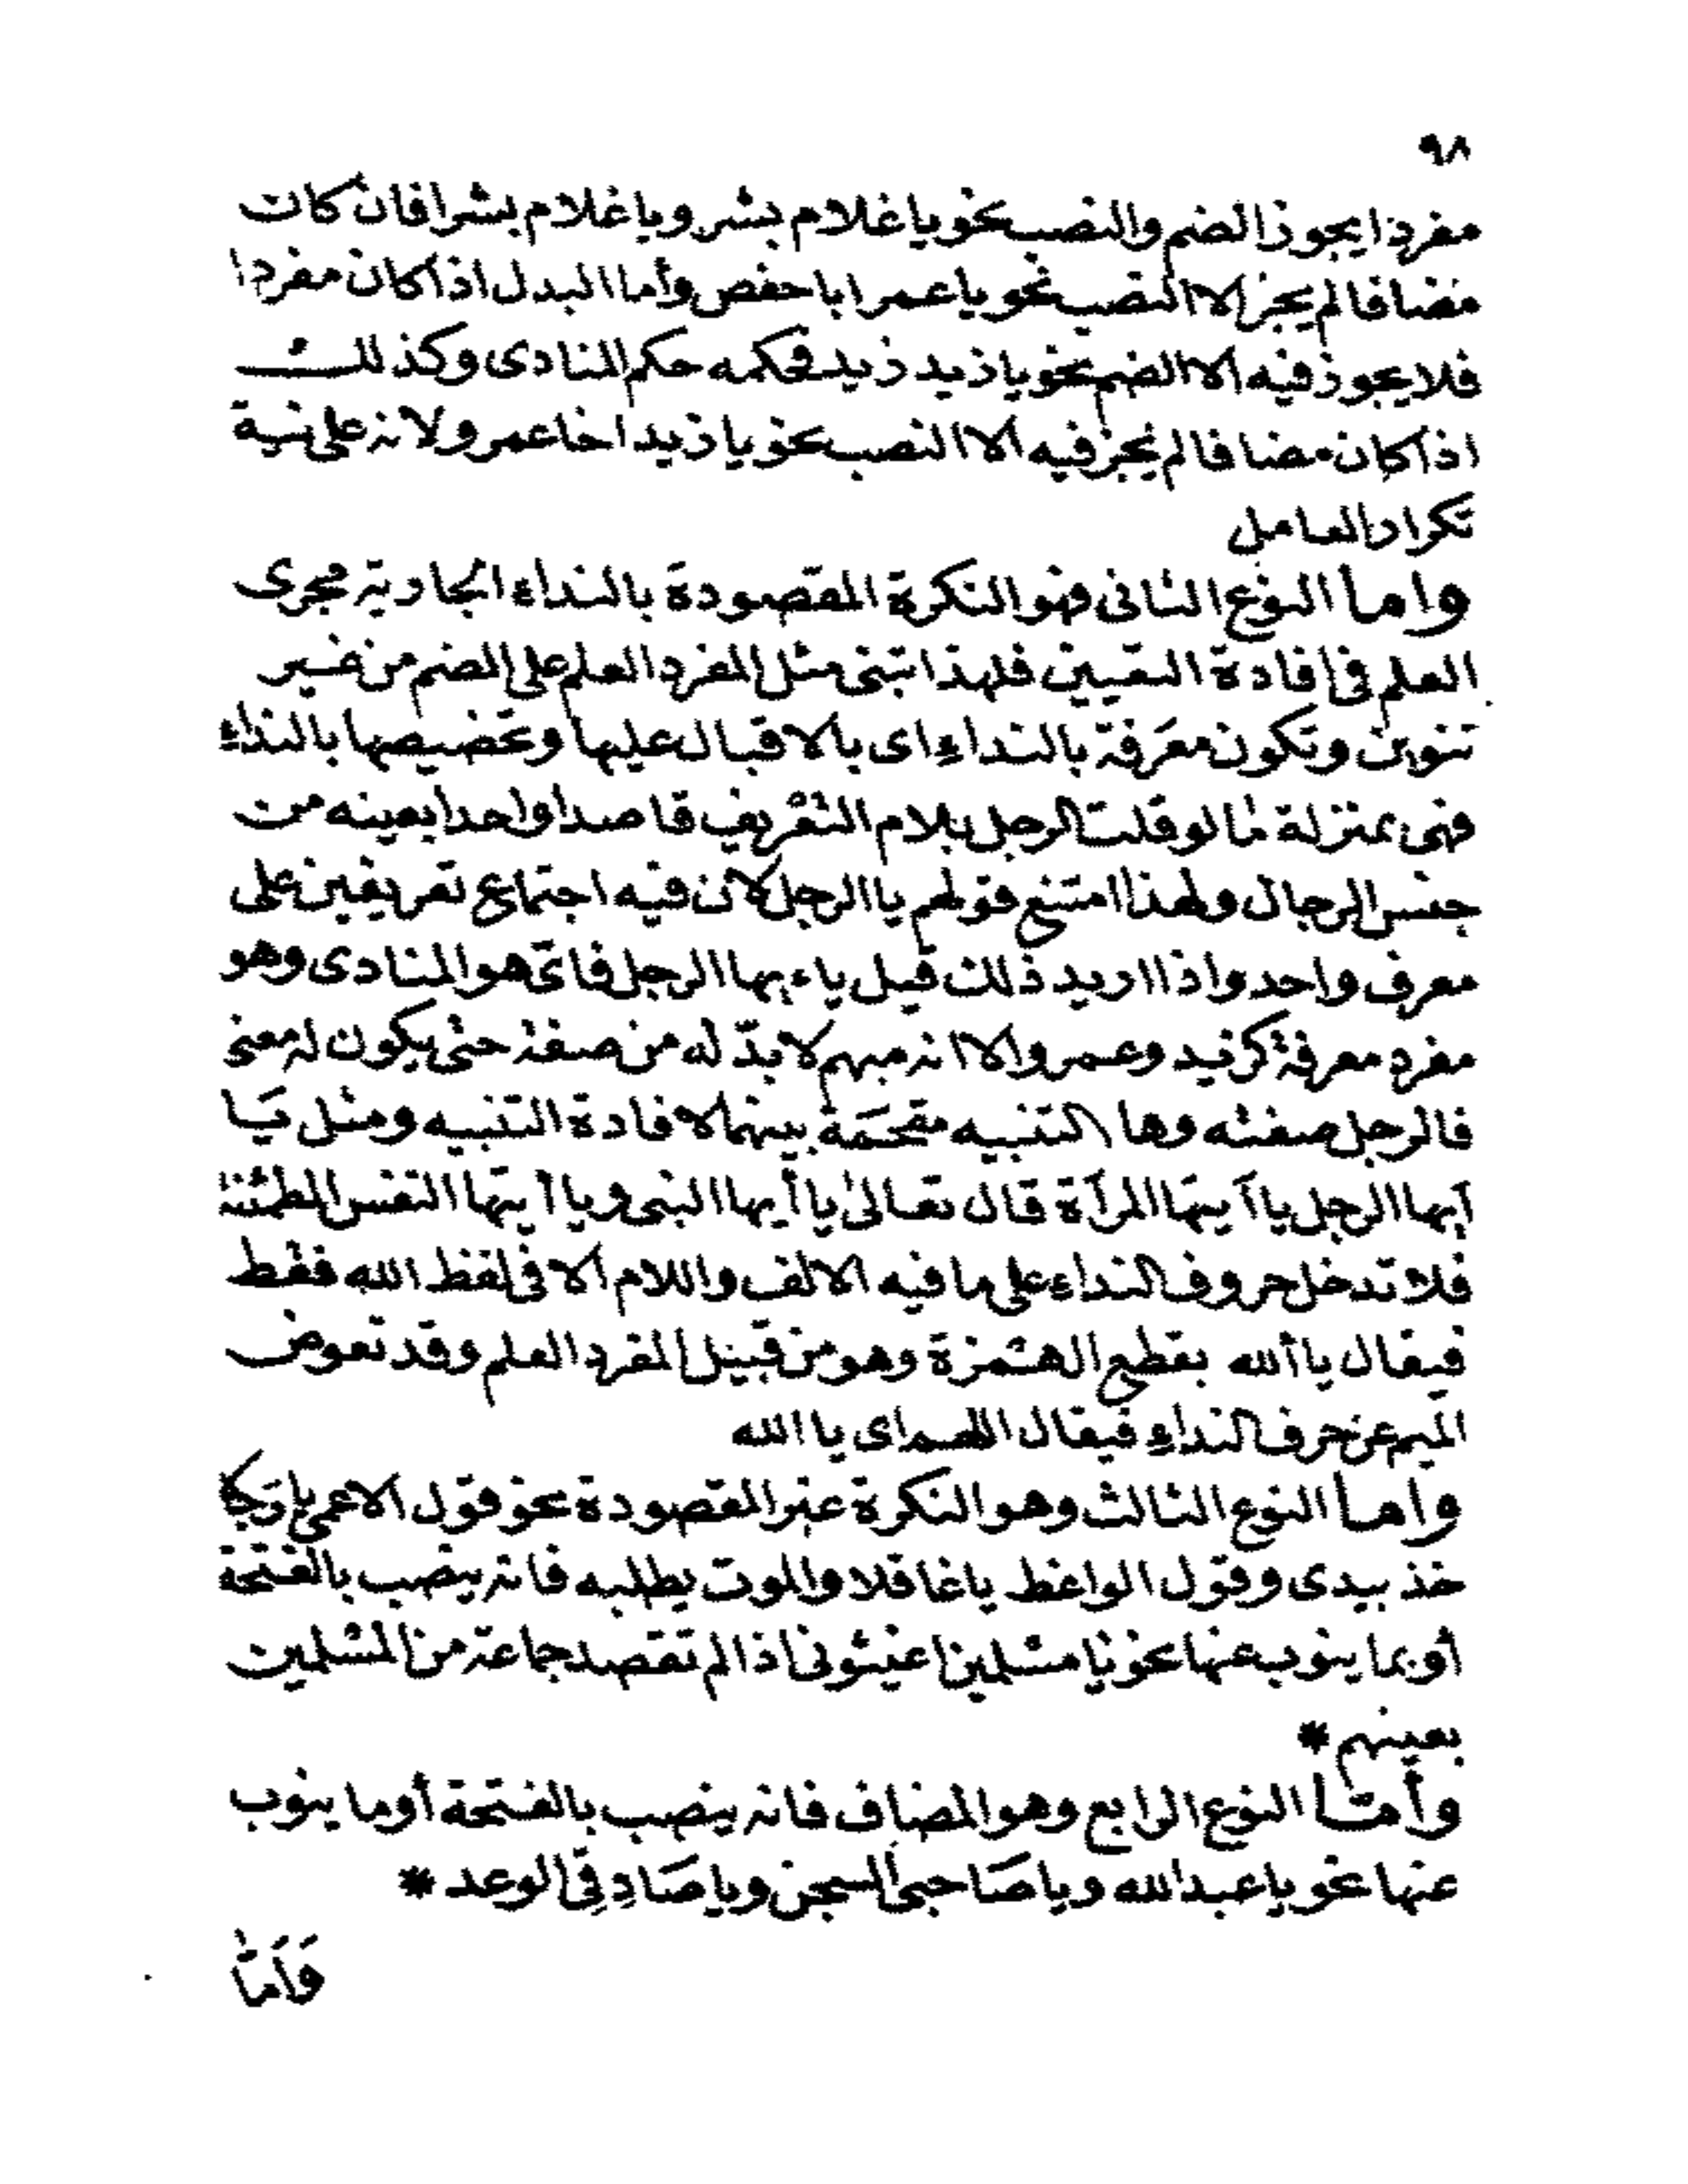 ٩٨
مفردا يجوز الضم والنصب نحو يا غلام بشر ويا غلام بشرا فان كان
مضافا لم يجز الا النصب نحو يا عمر ابا حفص وأما البدل اذا كان مفردا
فلا يجوز فيه الا الضم نحو يا زيد زيد فحكمه حكم المنادى وكذلك
اذا كان مضافا لم يجز فيه الا النصب نحو يا زيد اخا عمرو لانه على نية
تكرار العامل
واما النوع الثانى فهو النكرة المقصودة بالنداء الجارية مجرى
العلم فى افادة التعيين فلهذا تبنى مثل المفرد العلم على الضم من غير
تنوين وتكون معرفة بالنداء اى بالاقبال عليها وتخصيصها بالنداء
فهى بمنزلة ما لو قلت الرجل بلام التعريف قاصدا واحدا بعينه من
جنس الرجال ولهذا امتنع قولهم يا الرجل لان فيه اجتماع تعريفين على
معرف واحد واذا اريد ذلك قيل ياءيها الرجل فاىّ هو المنادى وهو
مفرد معرفة كزيد وعمرو الا انه مبهم لا بدّ له من صفة حتى يكون له معنى
فالرجل صفته وها التنبيه مقحمة بينهما لافادة التنبيه ومثل يَا
أيها الرجل يا أيتها المرأة قال تعالى يا أيها النبى ويا أيتها النفس المطمئنة
فلا تدخل حروف النداء على ما فيه الالف واللام الا فى لفظ الله فقط
فيقال يا ألله بقطع الهمزة وهو من قبيل المفرد العلم وقد تعوض
الميم عن حرف النداء فيقال اللهم اى يا الله
واما النوع الثالث وهو النكرة غير المقصودة نحو قول الاعمى يا رجلا
خذ بيدى وقول الواعظ يا غافلا والموت يطلبه فانه ينصب بالفتحة
أو بما ينوب عنها نحو يا مسلمين اغيثونى اذا لم تقصد جماعة من المسلمين
بعينهم *
وأمّا النوع الرابع وهو المضاف فانه ينصب بالفتحة أو ما ينوب
عنها نحو يا عبد الله ويا صَاحبى السجن ويا صَادِقِى الوعد *
وَأَمّا